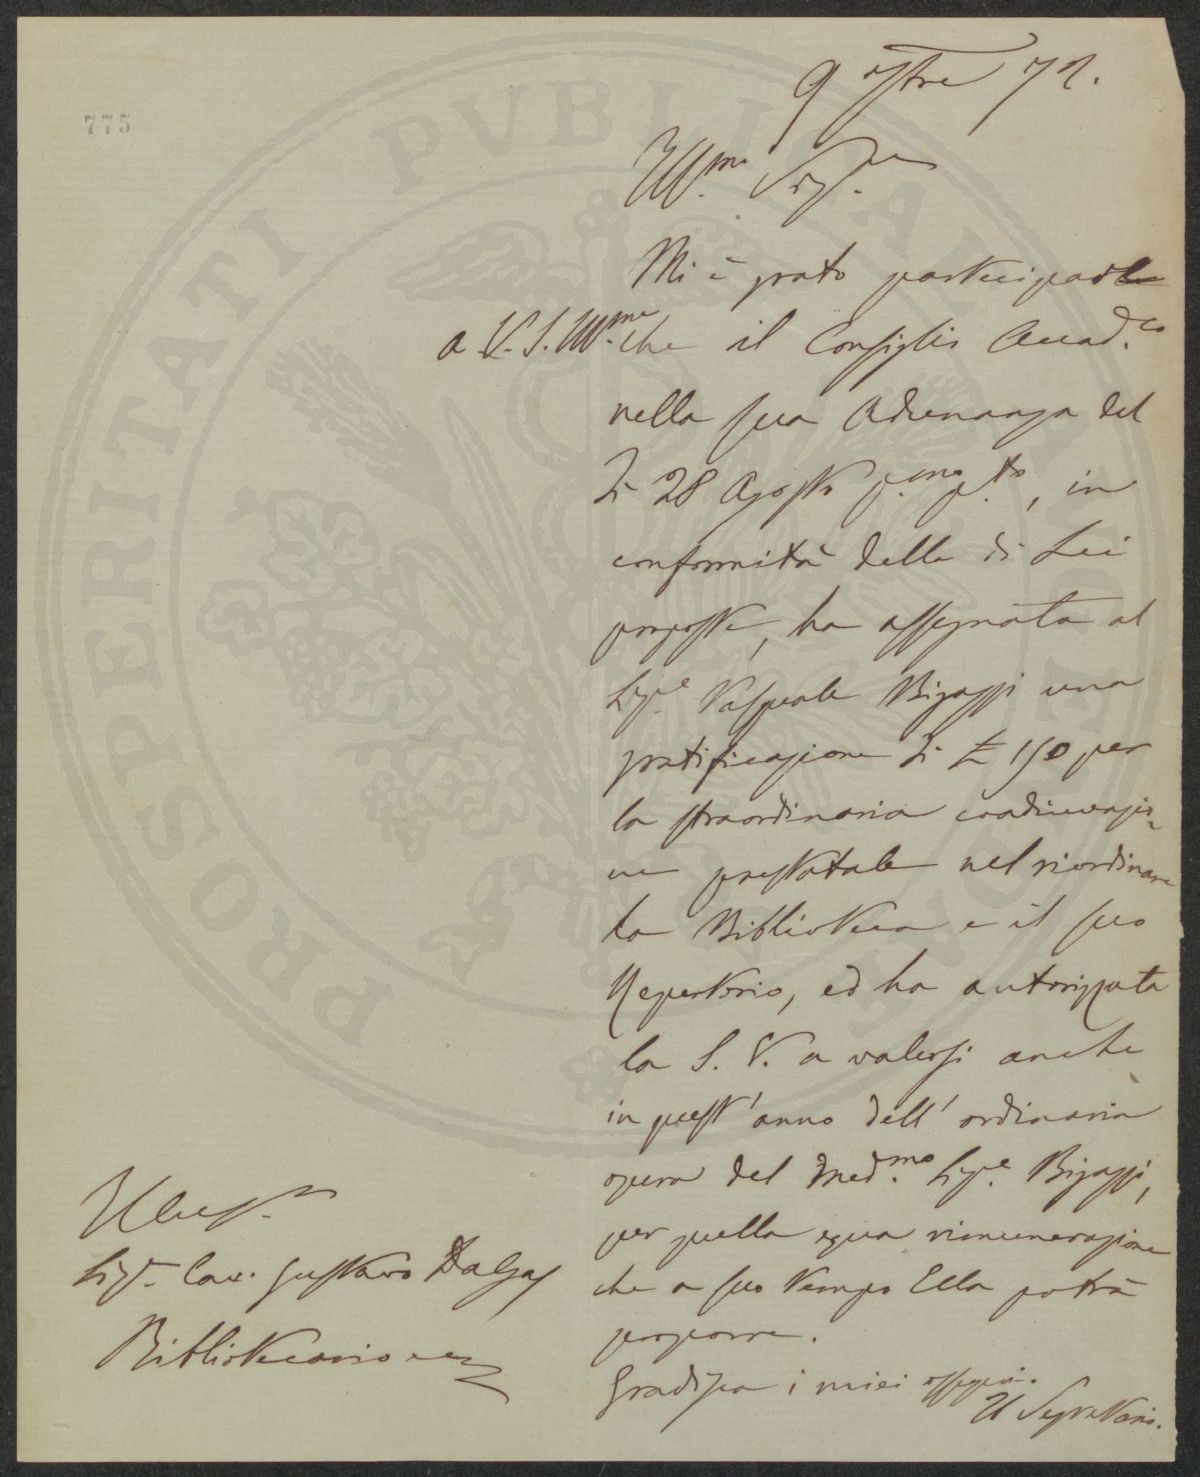 775
9 7bre 72.
Ill.mo Sig.re
Mi è grato partecipare
a V. S. Ill.ma che il Consiglio Accad.co
nella sua Adunanza del
dì 28 Agosto p.mo p.to, in
conformità delle di Lei
proposte, ha assegnata al
Sig.e Pasquale Bigazzi una
gratificazione di £ 150 per
la straordinaria coadiuvazio-
ne prestatale nel riordinare
la Biblioteca e il suo
Repertorio, ed ha autorizzata
la S. V. a valersi anche
in quest'anno dell'ordinaria
opera del med.mo Sig.e Bigazzi,
per quella equa rimunerazione
che a suo tempo Ella potrà
proporre.
Gradisca i miei ossequi.
Il Segretario.
Sig. Cav. Gustavo Dalgas
Bibliotecario
PROSPERITATI PVBLICAE